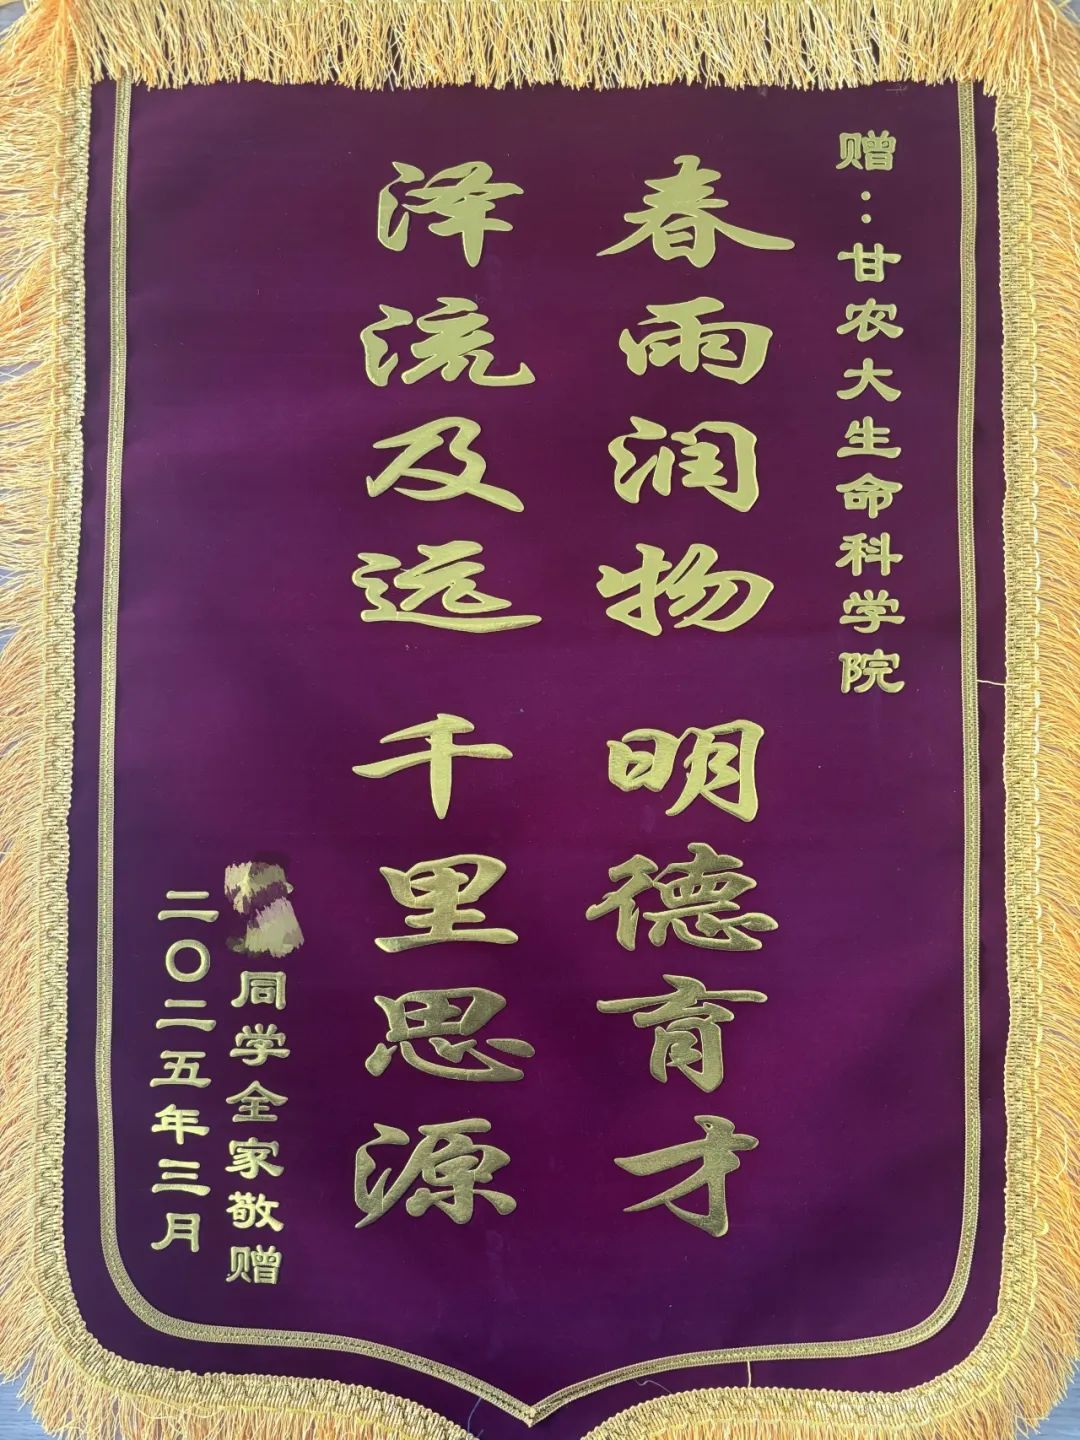 赠：甘农大生命科学院
春雨润物 明德育才
泽流及远 千里思源
同学全家敬赠
二〇二五年三月